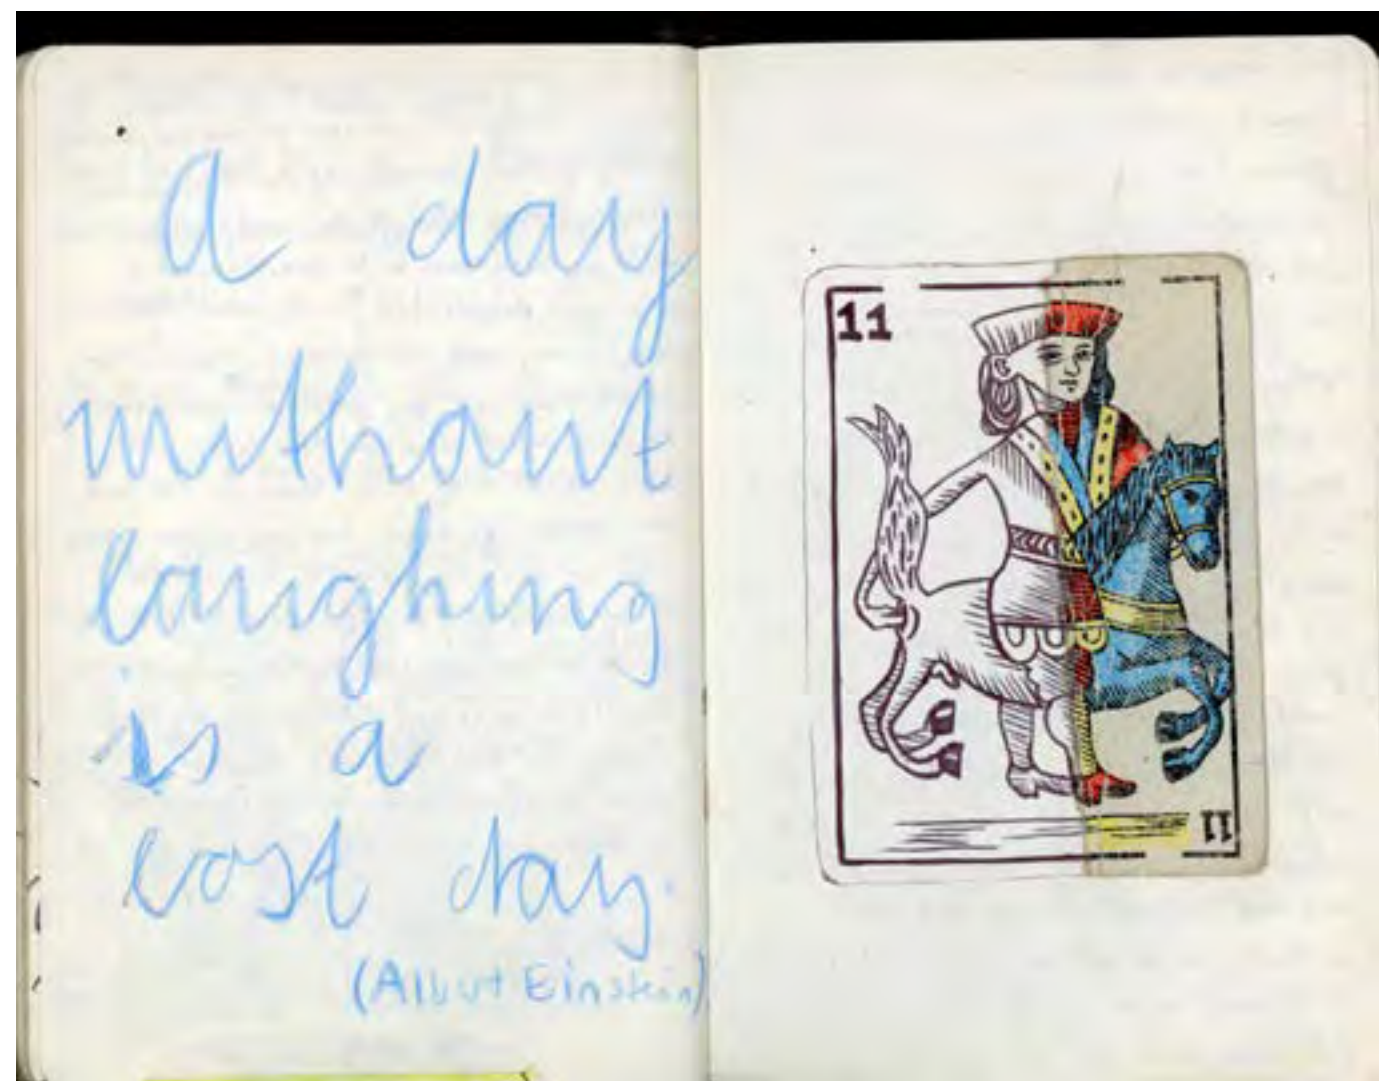 a day
without
laughing
is a
lost day.
(Albert Einstein)
11
11